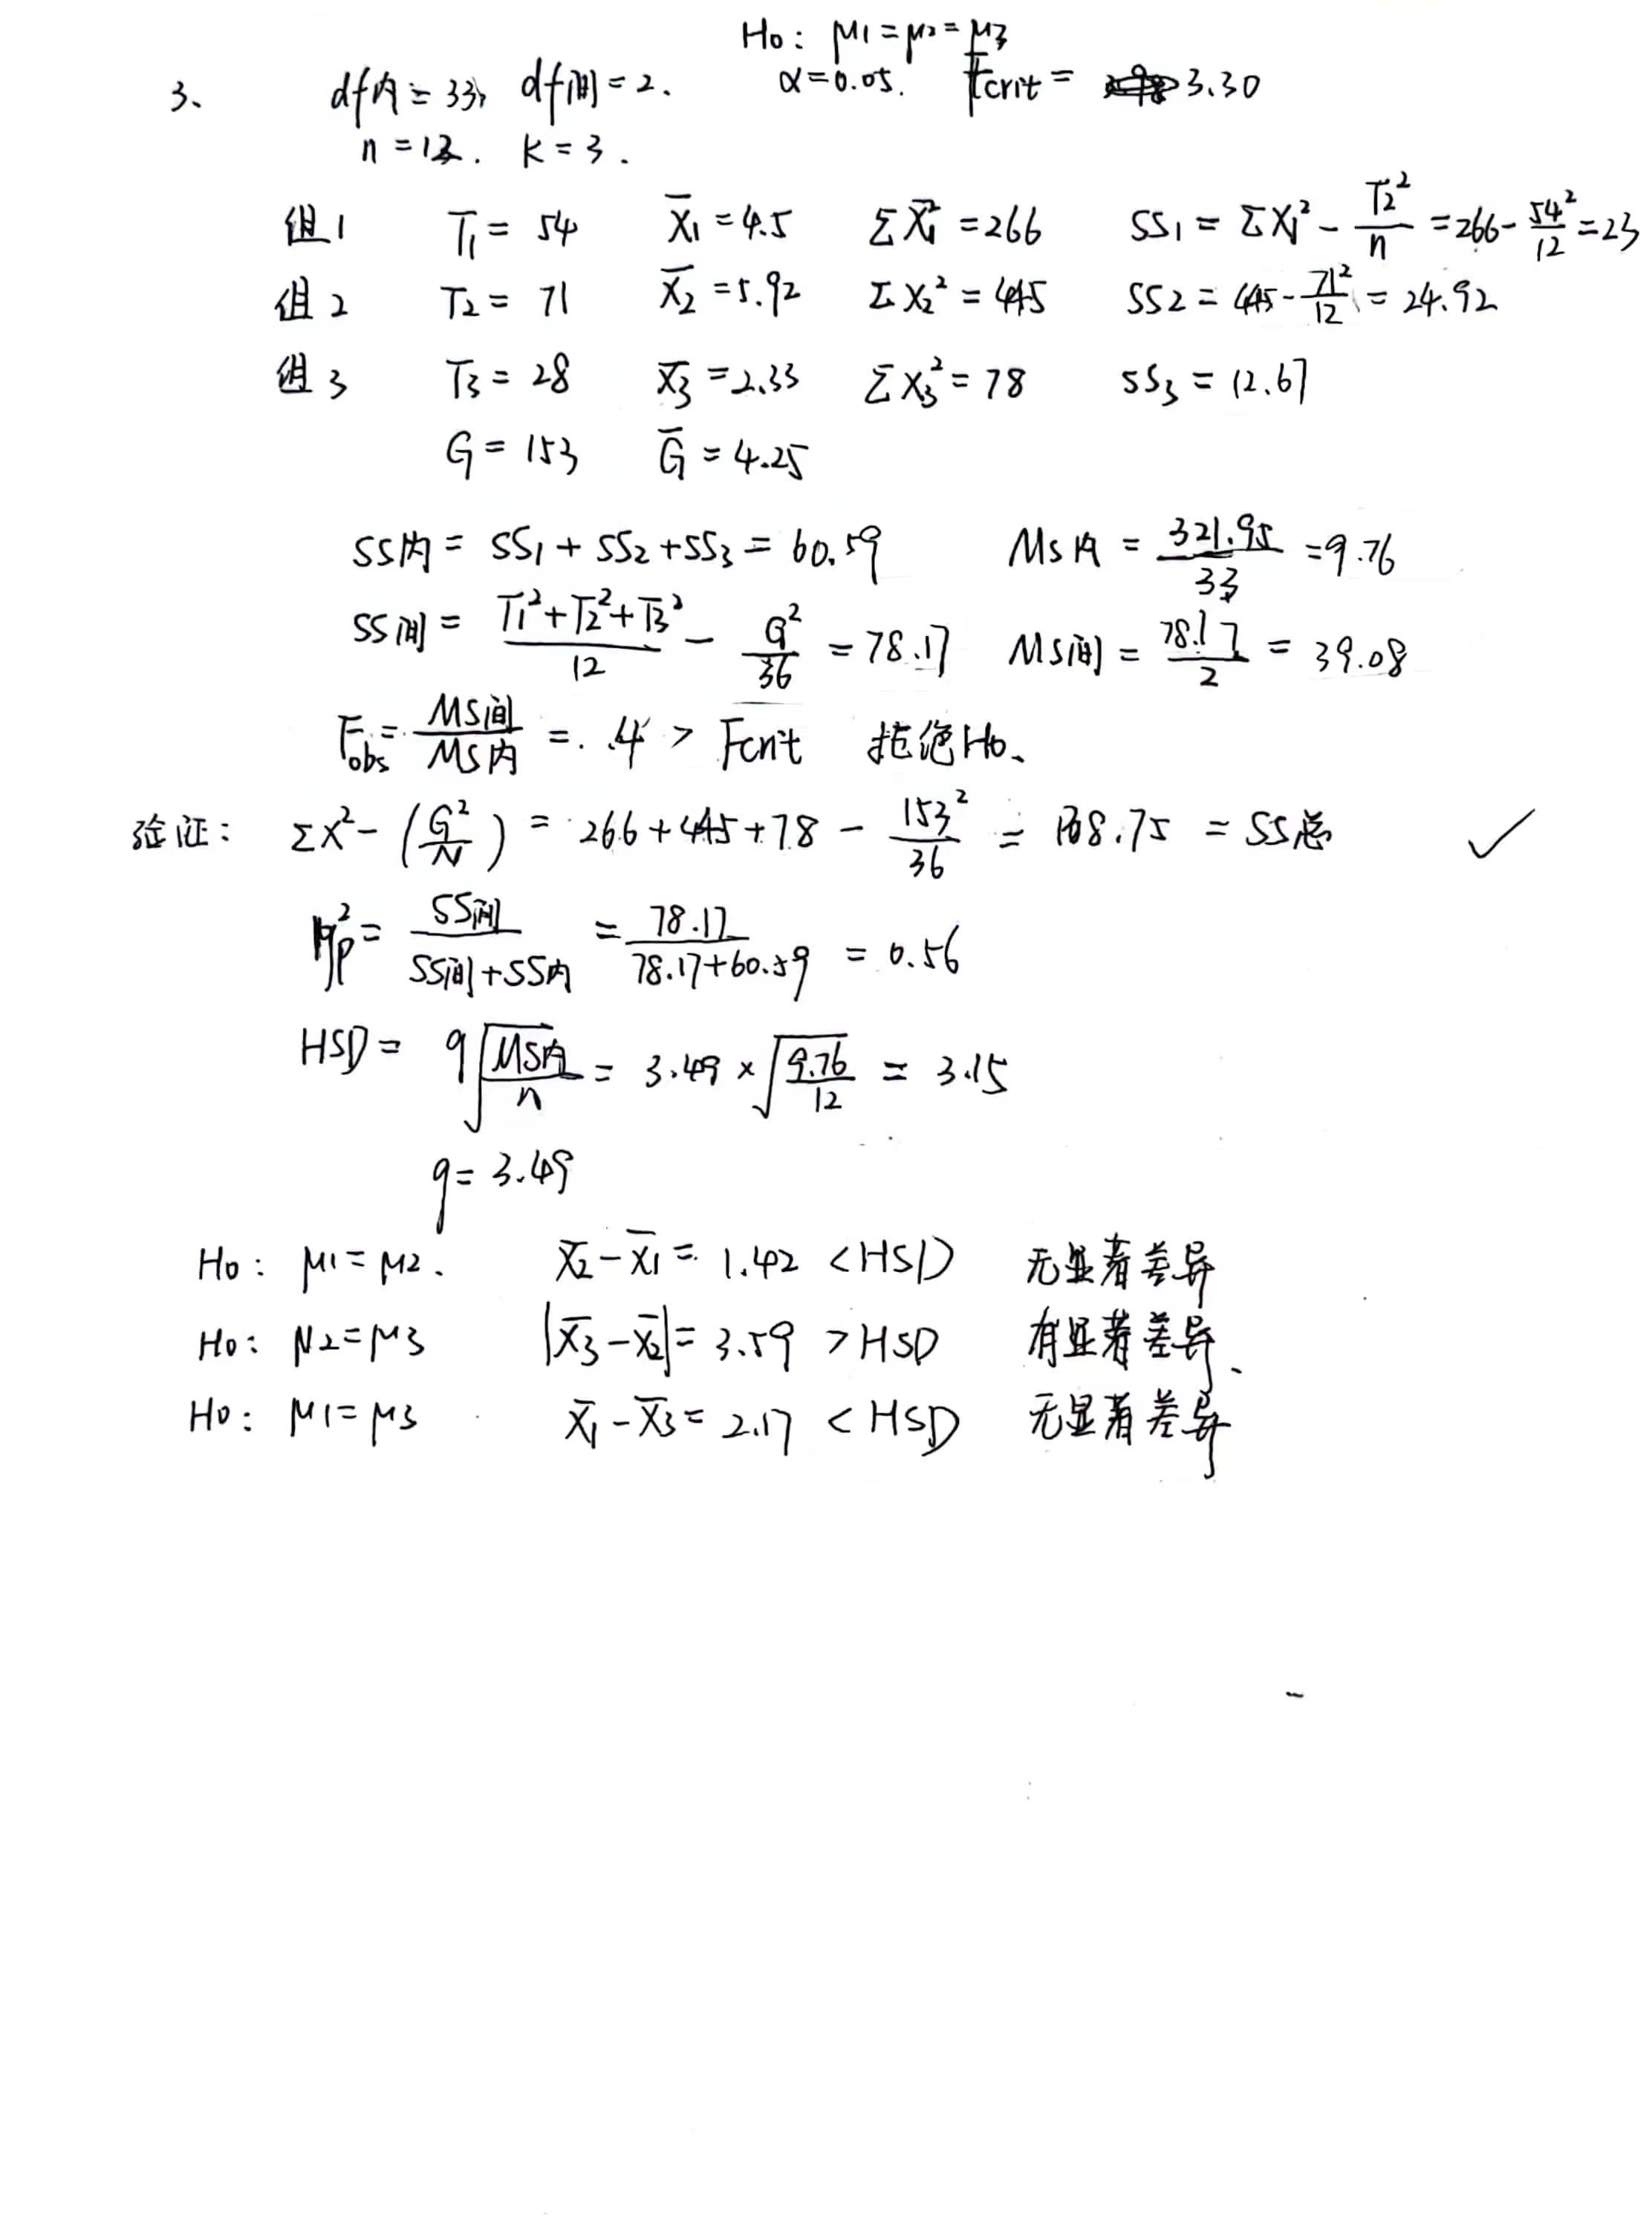 Ho: μ1=μ2=μ3
3、 df内=33, df间=2. α=0.05. Fcrit= 3.30
n=12. k=3.
组1 T1=54 X̄1=4.5 ΣX1²=266 SS1=ΣX1²-T2²/n=266-54²/12=23
组2 T2=71 X̄2=5.92 ΣX2²=445 SS2=445-71²/12=24.92
组3 T3=28 X̄3=2.33 ΣX3²=78 SS3=12.67
G=153 Ḡ=4.25
SS内=SS1+SS2+SS3=60.59 MS内=321.95/33=9.76
SS间=(T1²+T2²+T3²)/12-G²/36=78.17 MS间=78.17/2=39.08
Fobs=MS间/MS内=.4>Fcrit 拒绝Ho、
验证: ΣX²-(G²/N)=266+445+78-153²/36=138.75=SS总 ✓
ηp²=SS间/(SS间+SS内)=78.17/(78.17+60.59)=0.56
HSD=q√(MS内/n)=3.49×√(9.76/12)=3.15
q=3.49
Ho: μ1=μ2. X̄2-X̄1=1.42<HSD 无显著差异
Ho: μ2=μ3 |X̄3-X̄2|=3.59>HSD 有显著差异、
Ho: μ1=μ3 X̄1-X̄3=2.17<HSD 无显著差异